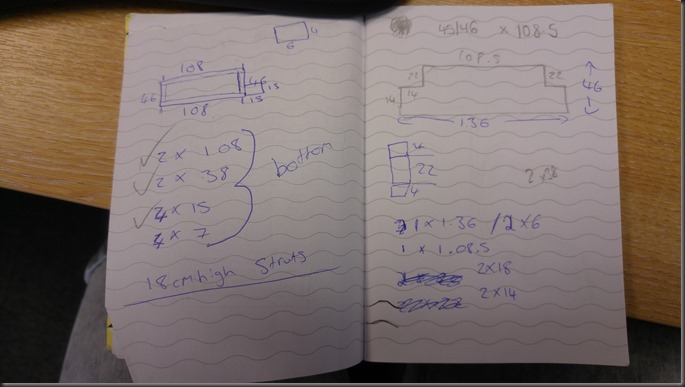 4
6
108
46
46
15
108
15
2 x 1.08
2 x 38
4 x 15
4 x 7
bottom
18cm high Struts
45/46 x 108.5
108.5
22
22
14
14
46
136
4
22
4
1 x 1.36 / 2 x 6
1 x 1.08.5
2x18
2x14